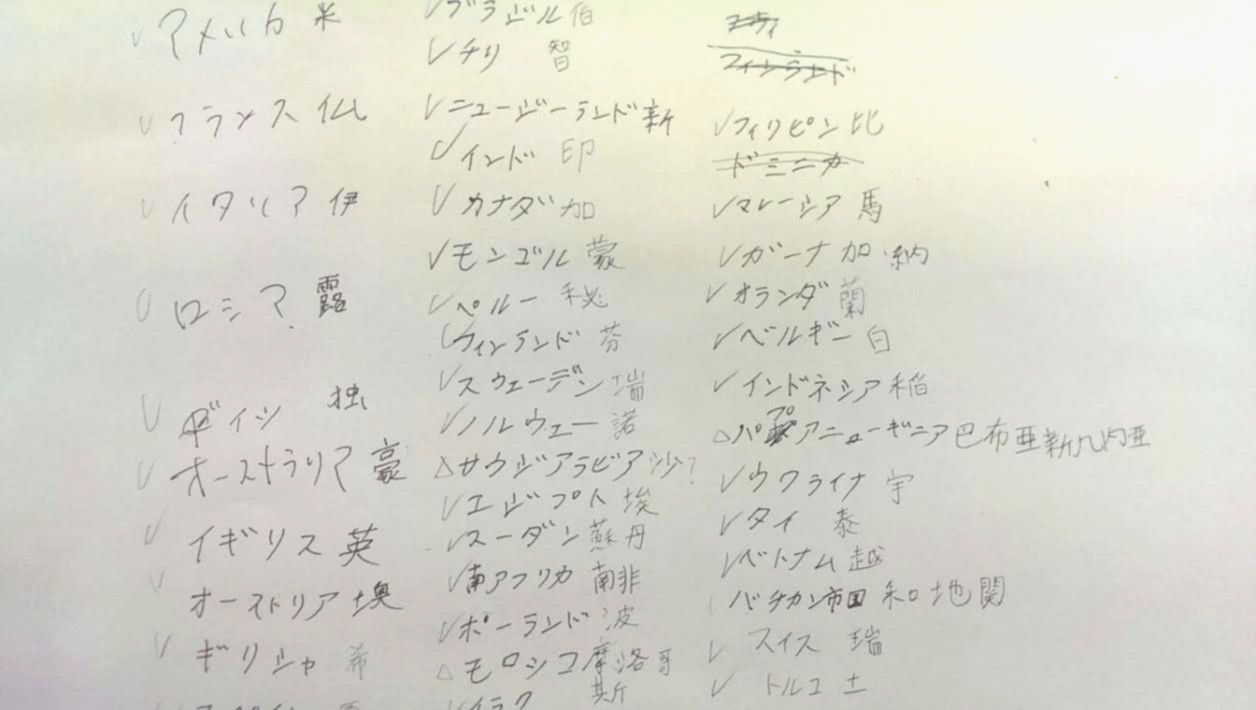 ✓アメリカ 米
✓フランス 仏
✓イタリア 伊
✓ロシア 露
✓ドイツ 独
✓オーストラリア 豪
✓イギリス 英
✓オーストリア 墺
✓ギリシャ 希
✓ブラジル 伯
✓チリ 智
✓ニュージーランド 新
✓インド 印
✓カナダ 加
✓モンゴル 蒙
✓ペルー 秘
✓フィンランド 芬
✓スウェーデン 瑞
✓ノルウェー 諾
△サウジアラビア 沙?
✓エジプト 埃
✓スーダン 蘇丹
✓南アフリカ 南非
✓ポーランド 波
△モロッコ 摩洛哥
✓イラク
フィンランド
✓フィリピン 比
ドミニカ
✓マレーシア 馬
✓ガーナ 加納
✓オランダ 蘭
✓ベルギー 白
✓インドネシア 稲
△パプアニューギニア 巴布亜新几内亜
✓ウクライナ 宇
✓タイ 泰
✓ベトナム 越
バチカン市国 和地関
✓スイス 瑞
✓トルコ 土